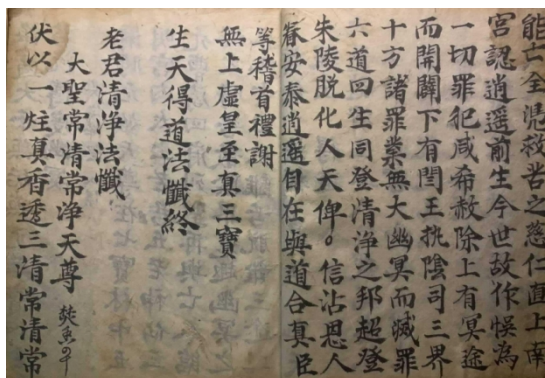 能亡全凴救苦之慈仁直上南
宫認逍遥前生今世故作悮為
一切罪犯咸希赦除上有冥途
而開闢下有閆王執陰司三界
十方諸罪業無大幽冥而滅罪
六道回生同登清净之邦超登
朱陵脱化人天俾。信沾恩人
眷安泰逍遥自在與道合真臣
等稽首禮謝
無上虚皇至真三寶
生天得道法懺終
老君清净法懺
大聖常清常净天尊
伏以一炷真香透三清常清常